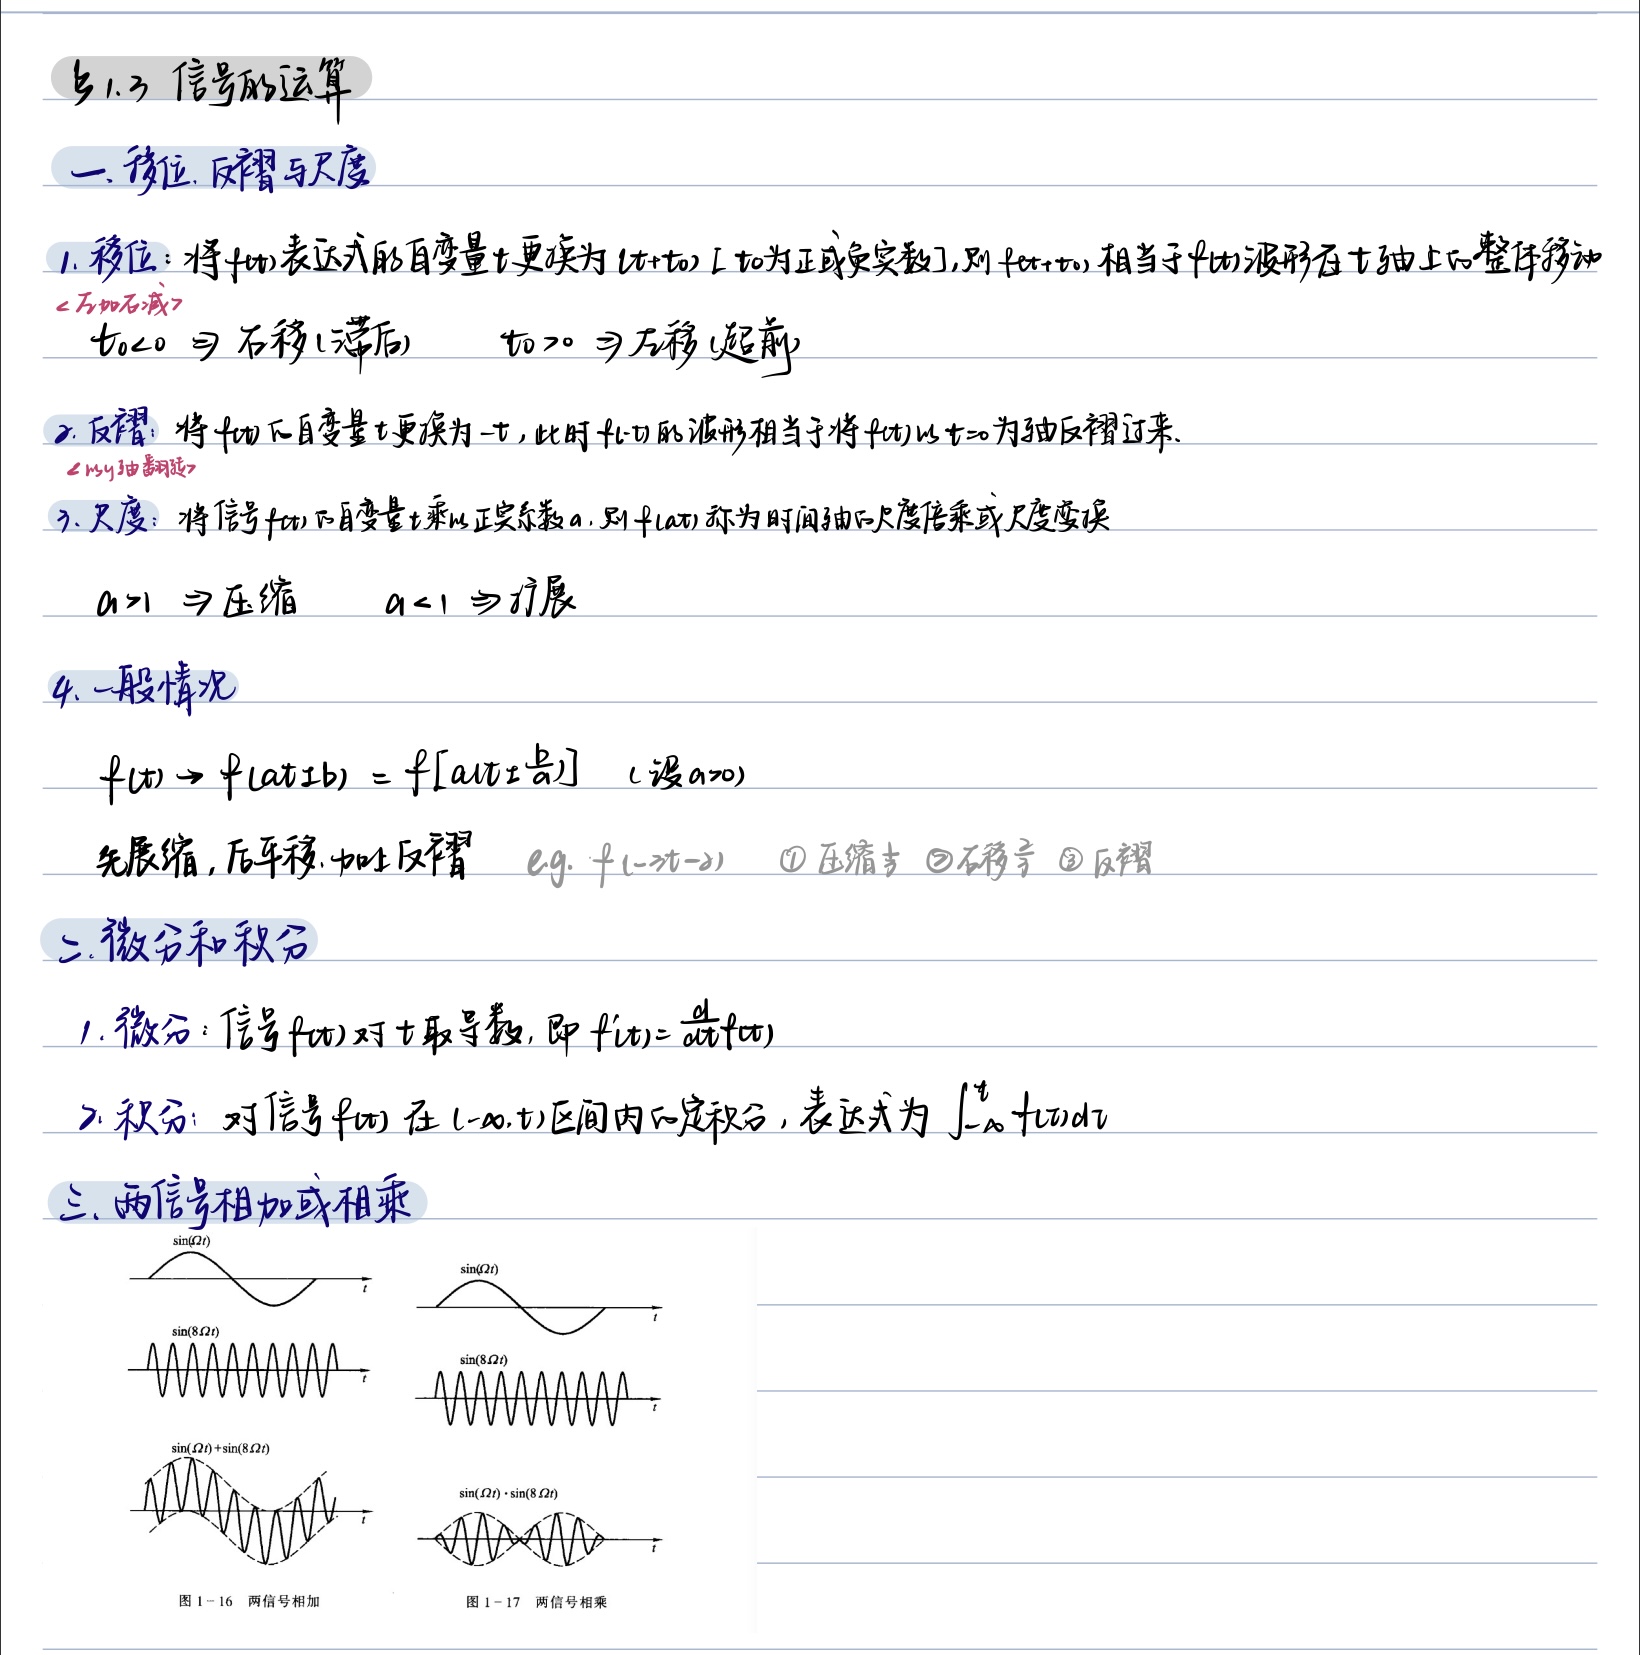 §1.3 信号的运算
一.移位.反褶与尺度
1.移位:将f(t)表达式的自变量t更换为(t+t₀)[t₀为正或负实数],则f(t+t₀)相当于f(t)波形在t轴上的整体移动
<左加右减>
t₀<0 ⇒ 右移(滞后) t₀>0 ⇒ 左移(超前)
2.反褶:将f(t)的自变量t更换为-t,此时f(-t)的波形相当于将f(t)以t=0为轴反褶过来.
<以y轴翻转>
3.尺度:将信号f(t)的自变量t乘以正实系数a,则f(at)称为时间轴的尺度倍乘或尺度变换
a>1 ⇒ 压缩 a<1 ⇒ 扩展
4.一般情况
f(t)→f(at±b) = f[a(t±b/a)] (设a>0)
先展缩,后平移.加上反褶 e.g. f(-3t-2) ①压缩⅓ ②右移⅔ ③反褶
二.微分和积分
1.微分:信号f(t)对t取导数,即f'(t)=d/dt f(t)
2.积分:对信号f(t)在(-∞,t)区间内的定积分,表达式为∫_{-∞}^{t} f(τ)dτ
三.两信号相加或相乘
sin(Ωt)
t
sin(8Ωt)
t
sin(Ωt)+sin(8Ωt)
t
图1-16 两信号相加
sin(Ωt)
t
sin(8Ωt)
t
sin(Ωt)·sin(8Ωt)
t
图1-17 两信号相乘